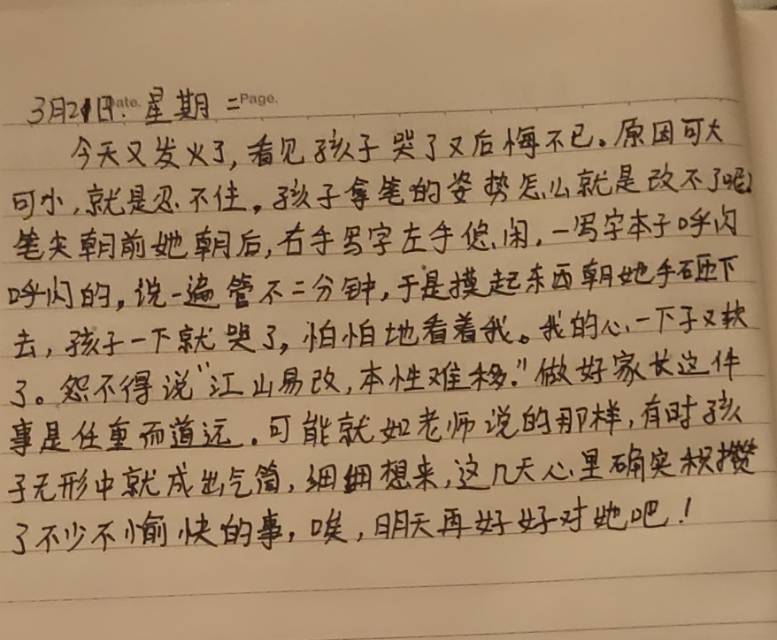 3月21日. ate. 星期二 Page.
今天又发火了,看见孩子哭了又后悔不已。原因可大
可小,就是忍不住。孩子拿笔的姿势怎么就是改不了呢
笔尖朝前她朝后,右手写字左手悠闲,一写字本子呼闪
呼闪的,说一遍管不二分钟,于是摸起东西朝她手砸下
去,孩子一下就哭了,怕怕地看着我。我的心一下子又软
了。怨不得说“江山易改,本性难移.”做好家长这件
事是任重而道远.可能就如老师说的那样,有时孩
子无形中就成出气筒,细细想来,这几天心里确实积攒
了不少不愉快的事,唉,明天再好好对她吧!